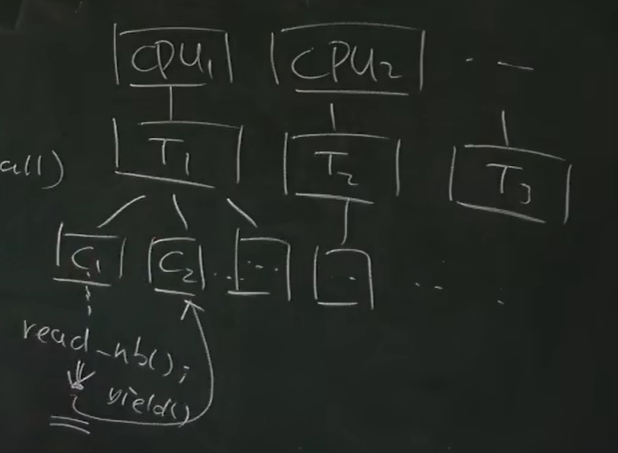 CPU₁ CPU₂ ...
all) T₁ T₂ T₃
C₁ C₂ ... ... ... ...
read_nb();
yield()